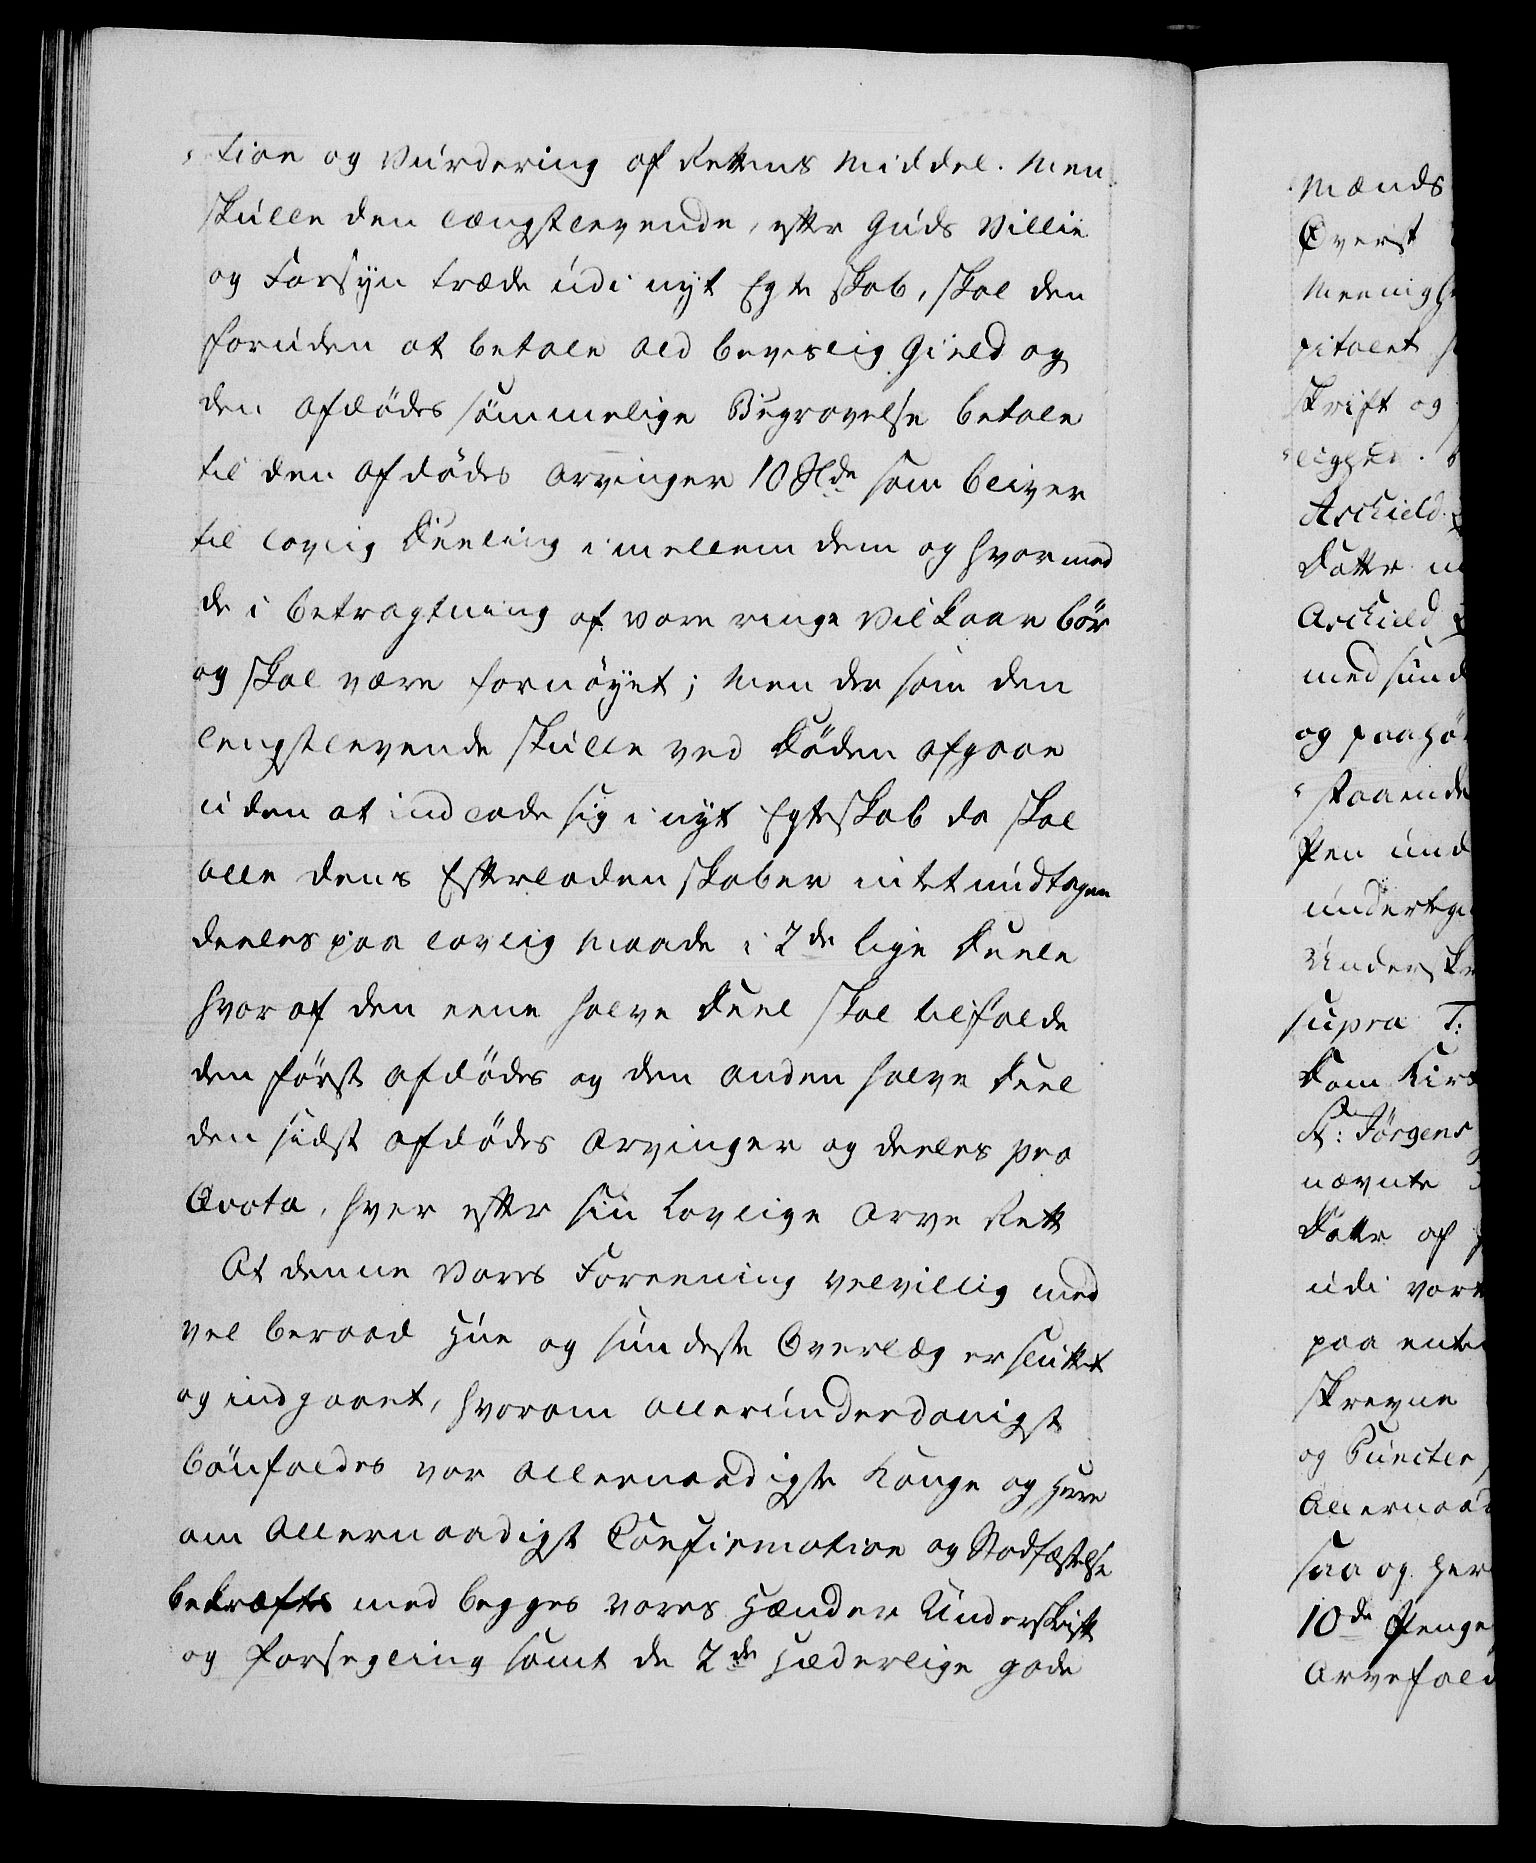 tion og Vurdering af Rettens Middel. Men
skulle den længstlevende, efter Guds Villie
og Forsyn træde udi nyt Egteskab, skal den
foruden at betale ald beviislig Gield og
den afdödes sömmelige Begravelse betale
til den afdödes Arvinger 10 Rdr som bliver
til lovlig Deeling imellem dem og hvormed
de i betragtning af vore ringe Vilkaar bör
og skal være fornöyet; Men der som den
længstlevende skulle ved Döden afgaae
uden at indlade sig i nyt Egteskab da skal
alle dens Efterladenskaber intet undtagen
deeles paa lovlig Maade i 2de lige Deele
hvoraf den eene halve Deel skal tilfalde
den förste afdödes og den anden halve Deel
den sidst afdödes Arvinger og deeles pro
Qvota, hver efter sin Lovlige Arve Rett
At denne Vores Foreening velvillig med
vel beraad Hue og sundeste Overlæg er sluttet
og indgaaet, hvorom allerunderdanigst
bönfaldes vor allernaadigste Konge og Herre
om Allernaadigst Confirmation og Stadfæstelse
bekræftes med begges vores Hænders Underskrift
og Forsegling samt de 2de Hæderlige gode
Mænds
Överst
Meenigh
pitalet
skrift og
ligger.
Askield
Datter
Askield
med sund
og paahö
staaende
Pen und
undertegn
Underskr
supra T:
Dom Kir
St: Jörgens
nævnte
Datter af
udi vor
paa ent
skrevne
og Puncter
Allernaad
saa og her
10de Penge
Arvefald